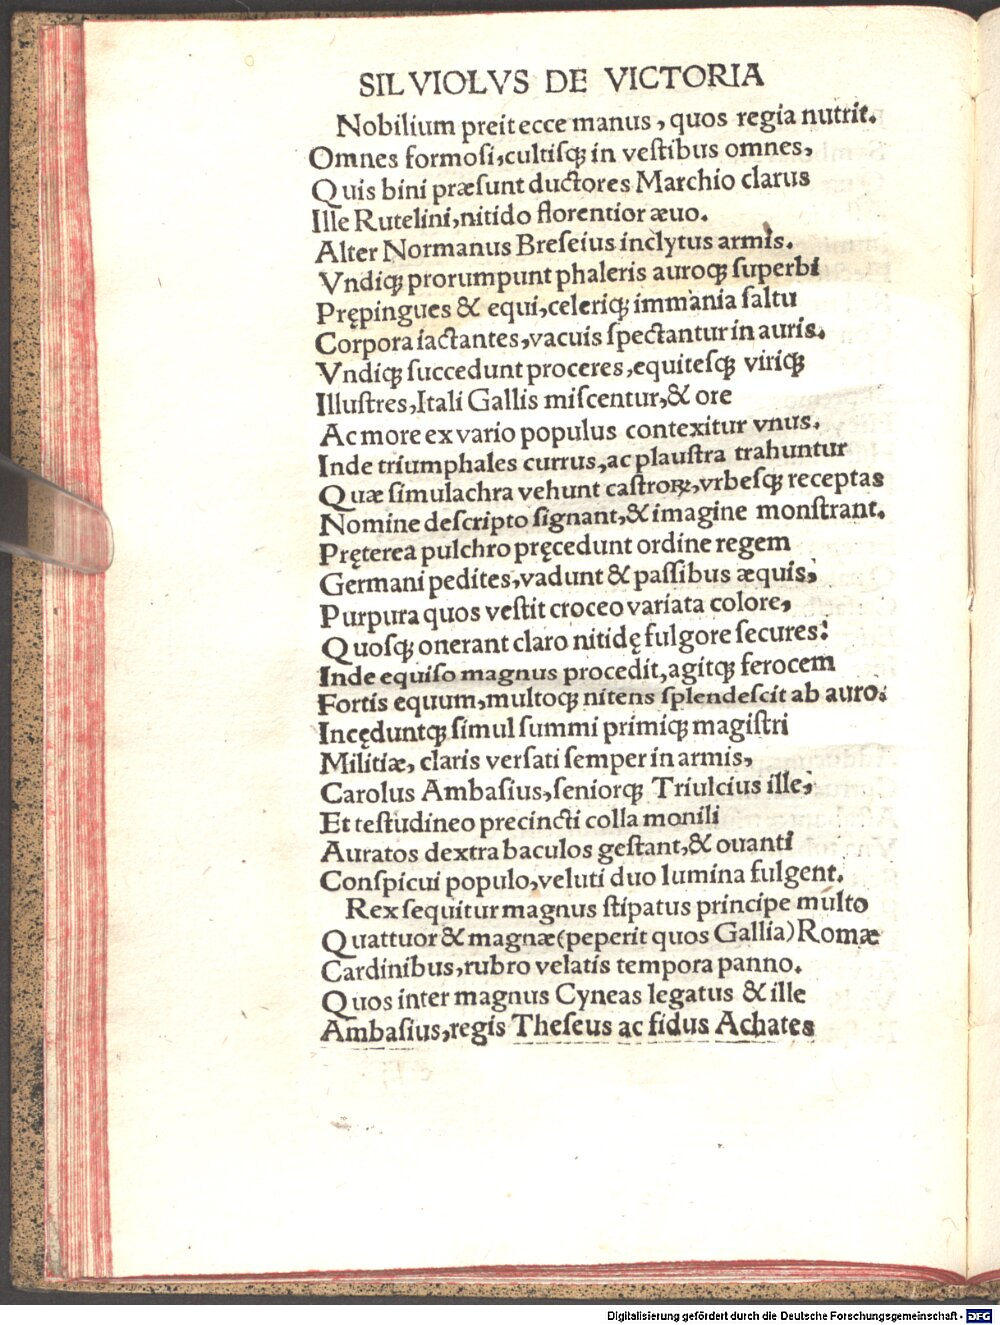 SILVIOLVS DE VICTORIA
Nobilium preit ecce manus, quos regia nutrit.
Omnes formosi, cultisqꝫ in vestibus omnes,
Quis bini præsunt ductores Marchio clarus
Ille Rutelini, nitido florentior æuo.
Alter Normanus Breseius inclytus armis.
Vndiqꝫ prorumpunt phaleris auroqꝫ superbi
Prępingues & equi, celeriqꝫ immania saltu
Corpora iactantes, vacuis spectantur in auris.
Vndiqꝫ succedunt proceres, equitesqꝫ viriqꝫ
Illustres, Itali Gallis miscentur, & ore
Ac more ex vario populus contexitur vnus.
Inde triumphales currus, ac plaustra trahuntur
Quæ simulachra vehunt castroꝝ, vrbesqꝫ receptas
Nomine descripto signant, & imagine monstrant.
Pręterea pulchro pręcedunt ordine regem
Germani pedites, vadunt & passibus æquis,
Purpura quos vestit croceo variata colore,
Quosqꝫ onerant claro nitidę fulgore secures:
Inde equiso magnus procedit, agitqꝫ ferocem
Fortis equum, multoqꝫ nitens splendescit ab auro.
Incęduntqꝫ simul summi primiqꝫ magistri
Militiæ, claris versati semper in armis,
Carolus Ambasius, seniorqꝫ Triulcius ille,
Et testudineo precincti colla monili
Auratos dextra baculos gestant, & ouanti
Conspicui populo, veluti duo lumina fulgent.
Rex sequitur magnus stipatus principe multo
Quattuor & magnæ (peperit quos Gallia) Romæ
Cardinibus, rubro velatis tempora panno.
Quos inter magnus Cyneas legatus & ille
Ambasius, regis Theseus ac fidus Achates
Digitalisierung gefördert durch die Deutsche Forschungsgemeinschaft - DFG